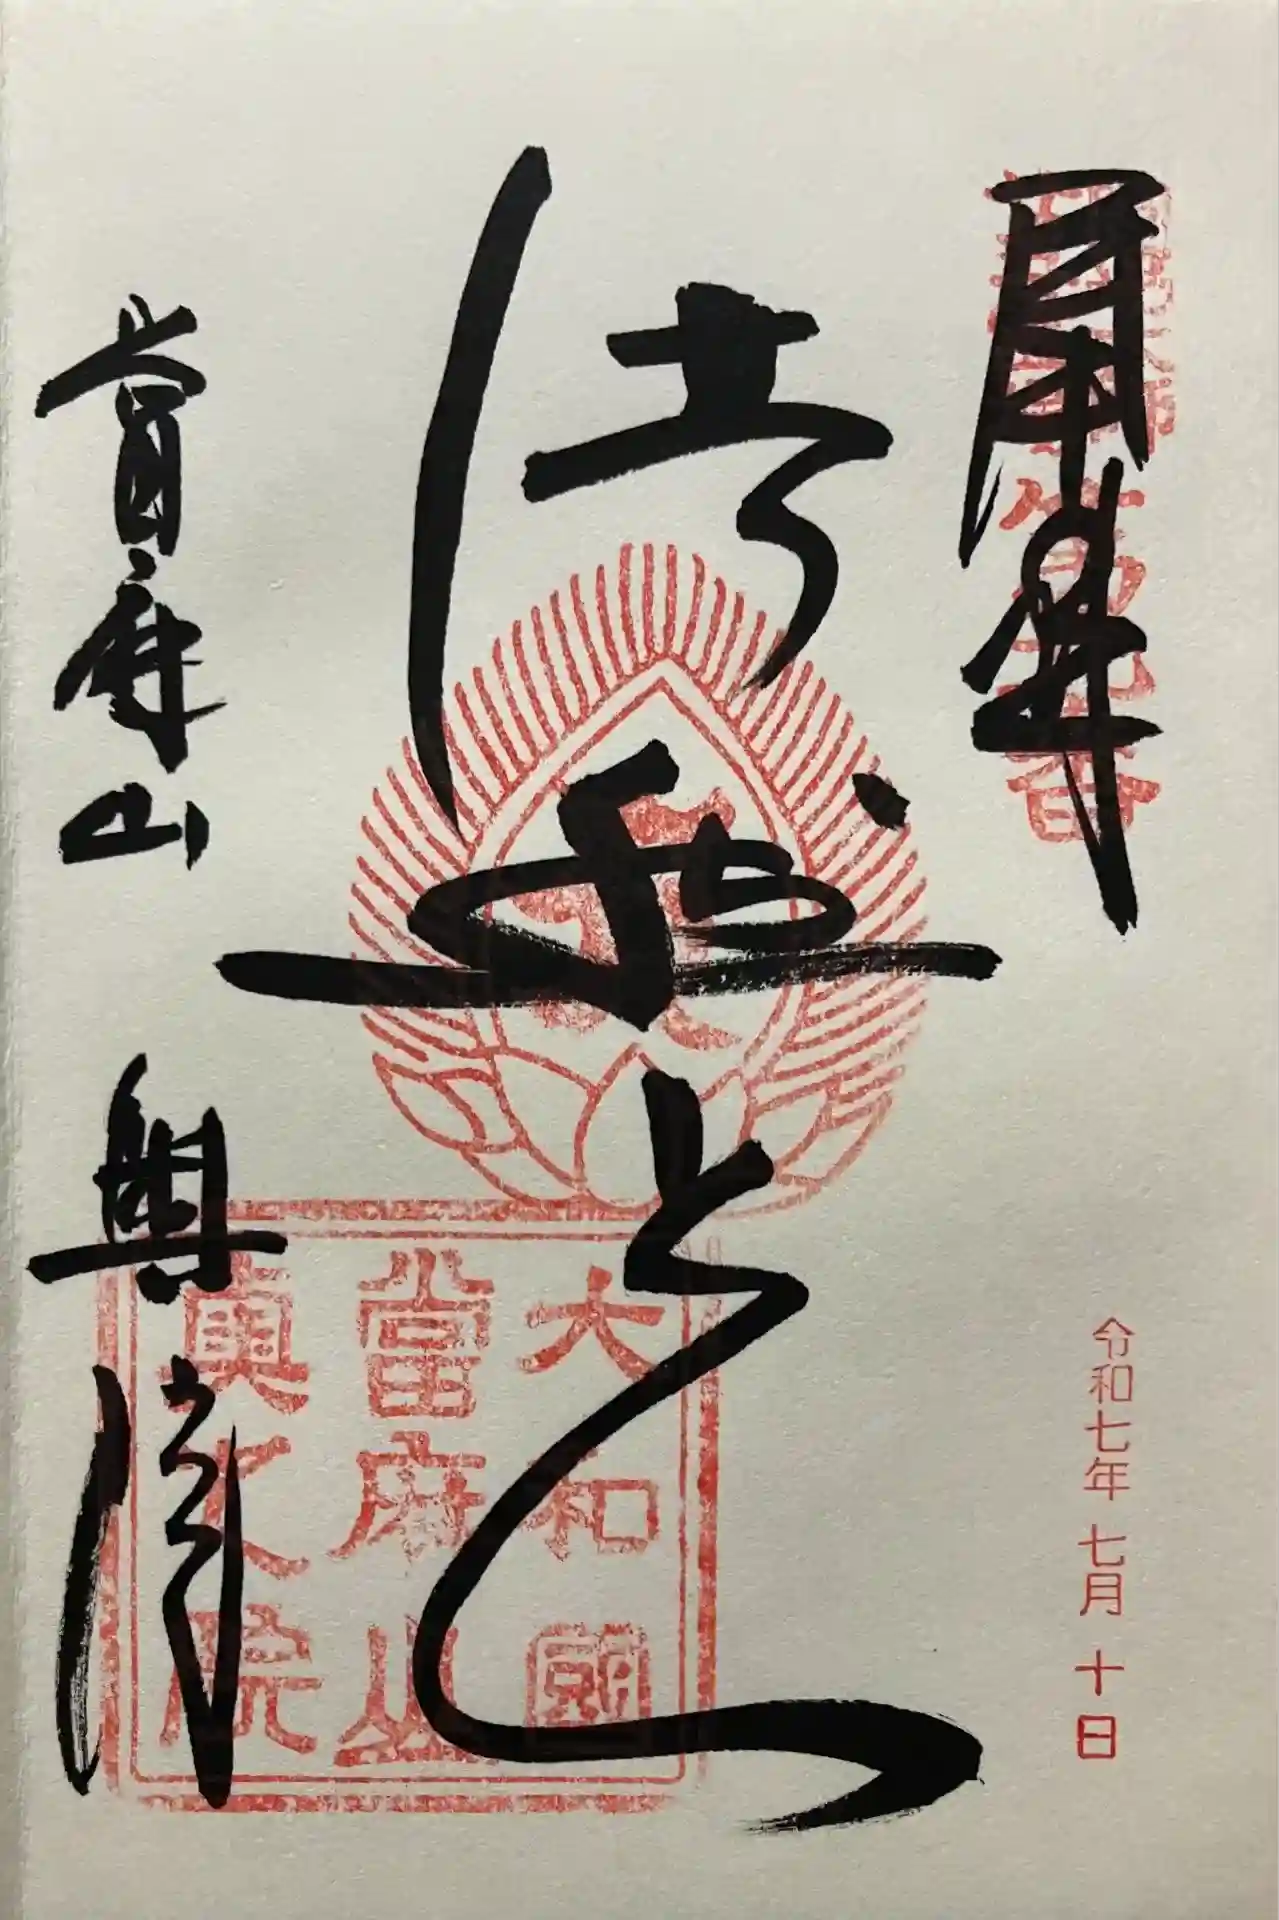 第九番
令和七年 七月 十日
法然上人
當麻山 奥院
大和國
當麻山
奥之院